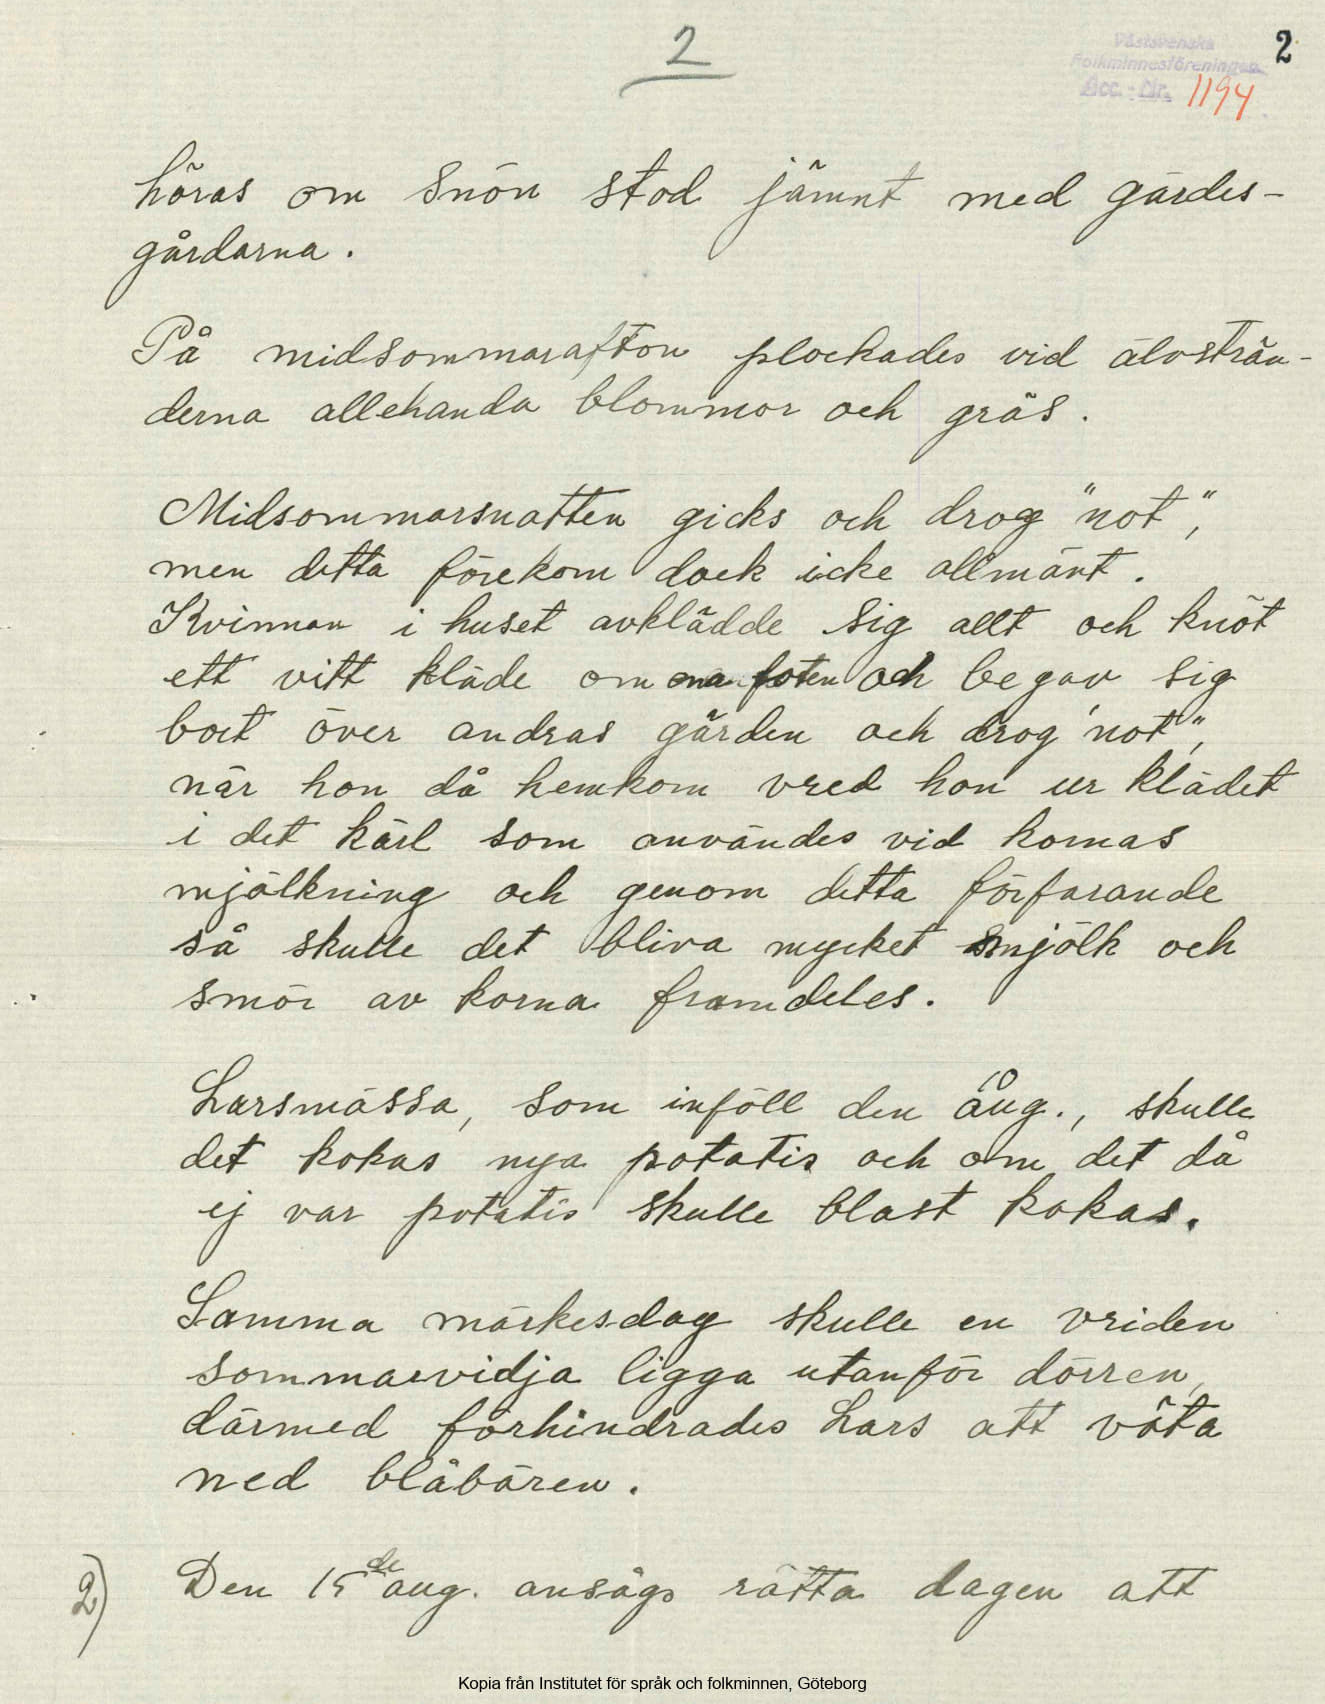 2
2
Västsvenska
Folkminnesföreningen
Acc. Nr. 1194
höras om snön stod jämnt med gärdes-
gårdarna.
På midsommarafton plockades vid älvsträn-
derna allehanda blommor och gräs.
Midsommarsnatten gicks och drog "not",
men detta förekom dock icke allmänt.
Kvinnan i huset avklädde sig allt och knöt
ett vitt kläde om ena foten och begav sig
bort över andras gärden och drog "not",
när hon då hemkom vred hon ur klädet
i det kärl som användes vid kornas
mjölkning och genom detta förfarande
så skulle det bliva mycket mjölk och
smör av korna framdeles.
Larsmässa, som inföll den 10 aug., skulle
det kokas nya potatis och om det då
ej var potatis skulle blast kokas.
Samma märkesdag skulle en vriden
sommarvidja ligga utanför dörren,
därmed förhindrades Lars att väta
ned blåbären.
2) Den 15de aug. ansågs rätta dagen att
Kopia från Institutet för språk och folkminnen, Göteborg